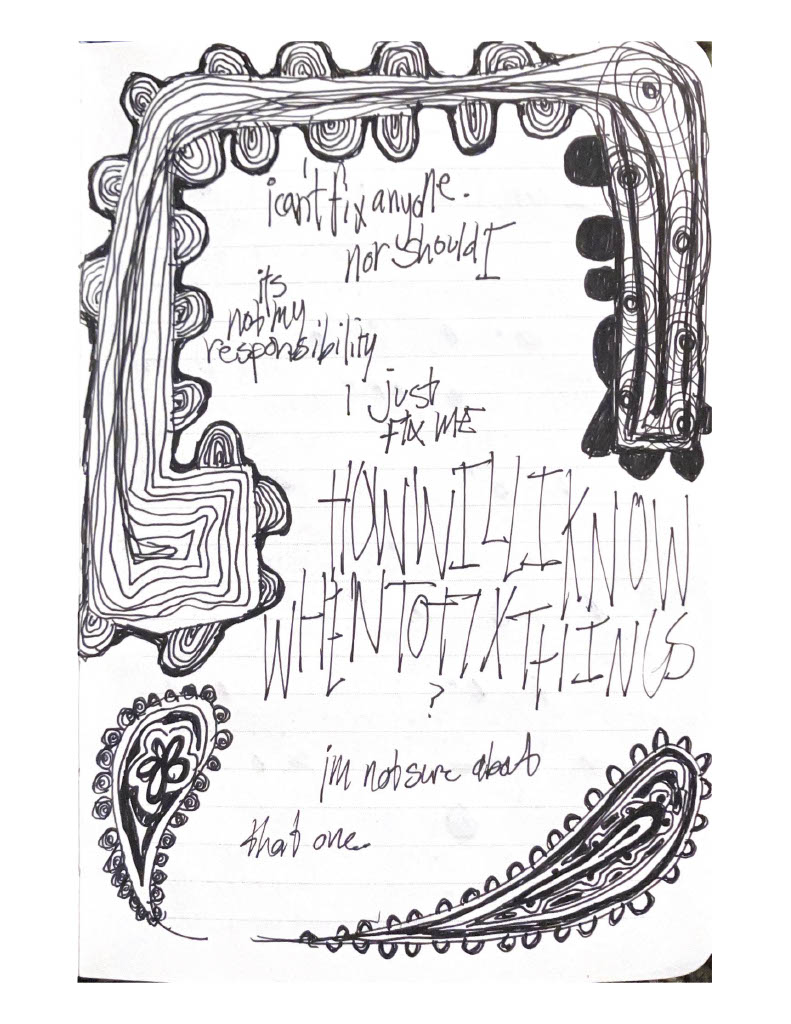 i can't fix anyone.
nor should I
its
not my
responsibility
I just
FIX ME
HOW WILL I KNOW
WHEN TO FIX THINGS
?
im not sure about
that one.